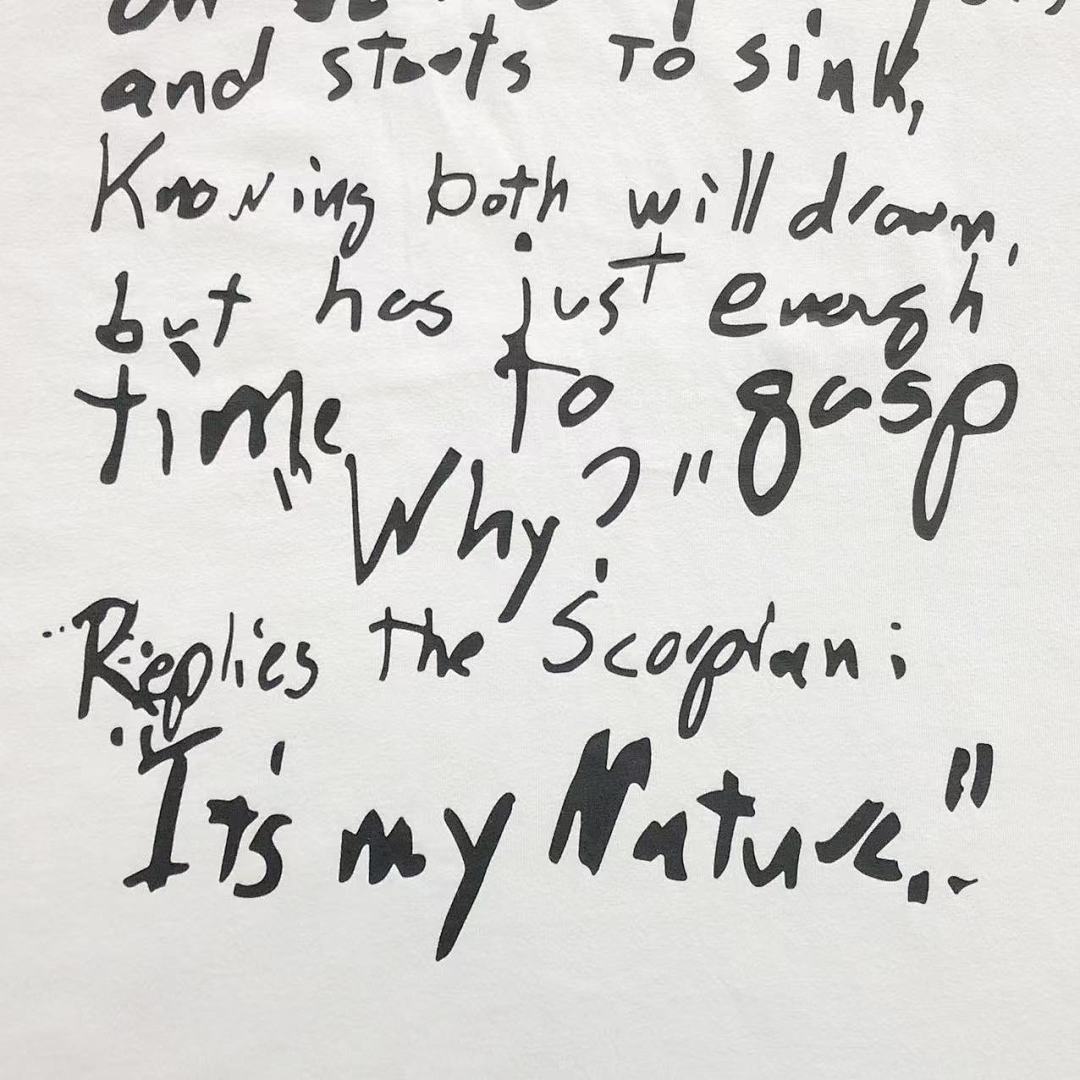 and starts to sink,
Knowing both will drown,
but has just enough
time to gasp
"Why?"
Replies the Scorpian:
"It's my Nature."